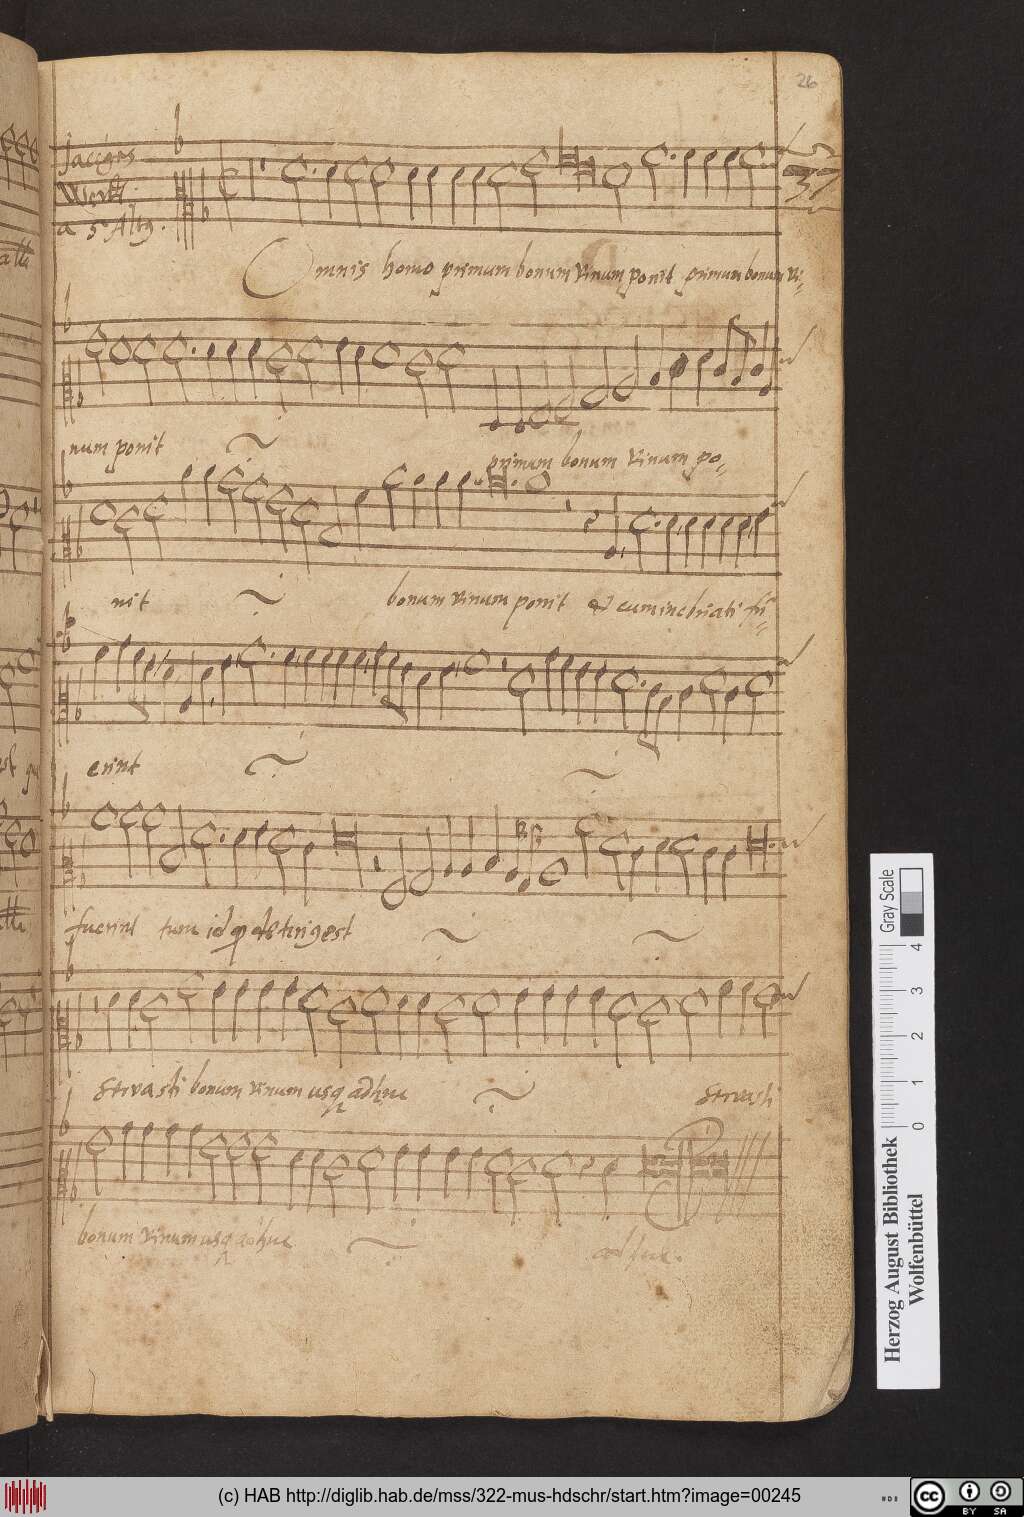 26
Jacques
Werk.
a 5 Altus.
Omnis homo primum bonum vinum ponit primum bonum vi=
num ponit primum bonum vinum po=
nit bonum vinum ponit et cum inebriati fu=
erint
fuerint tum id qd deterius est
servasti bonum vinum usq adhuc servasti
bonum vinum usq adhuc adhuc.
Gray Scale
0 1 2 3 4
Herzog August Bibliothek
Wolfenbüttel
(c) HAB http://diglib.hab.de/mss/322-mus-hdschr/start.htm?image=00245
cc BY SA